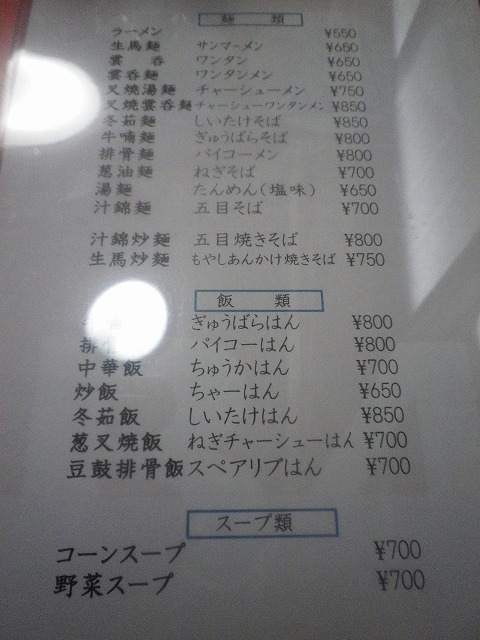 麺 類
ラーメン ¥550
生馬麺 サンマーメン ¥650
雲 呑 ワンタン ¥650
雲呑麺 ワンタンメン ¥650
叉焼湯麺 チャーシューメン ¥750
叉焼雲呑麺 チャーシューワンタンメン ¥850
冬茹麺 しいたけそば ¥850
牛喃麺 ぎゅうばらそば ¥800
排骨麺 パイコーメン ¥800
葱油麺 ねぎそば ¥700
湯麺 たんめん(塩味) ¥650
汁錦麺 五目そば ¥700
汁錦炒麺 五目焼きそば ¥800
生馬炒麺 もやしあんかけ焼きそば ¥750
飯 類
ぎゅうばらはん ¥800
排 パイコーはん ¥800
中華飯 ちゅうかはん ¥700
炒飯 ちゃーはん ¥650
冬茹飯 しいたけはん ¥850
葱叉焼飯 ねぎチャーシューはん ¥700
豆鼓排骨飯 スペアリブはん ¥700
スープ類
コーンスープ ¥700
野菜スープ ¥700